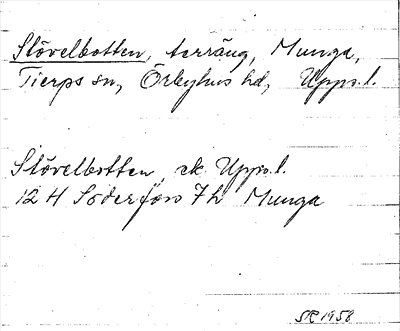 Stövelbotten, terräng, Munga,
Tierps sn, Örbyhus hd, Upps. l.
Stövelbotten, ek Upps. l.
12 H Söderfors 7h Munga
SR 1958